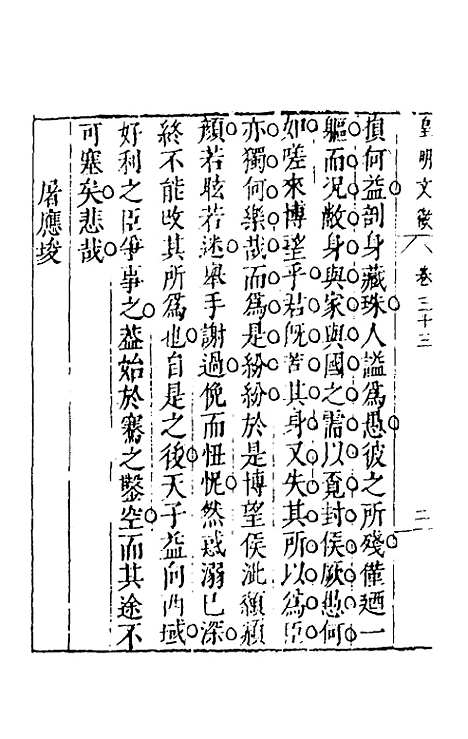 皇明文徵 卷三十三 二
損何益剖身藏珠人謚爲愚彼之所殘僅廼一
軀而况敝身與家與國之需以覔封侯厥愚何
如嗟來博望乎君旣苦其身又失其所以爲臣
亦獨何樂哉而爲是紛紛於是博望侯泚顙頳
顔若眩若迷舉手謝過俛而忸怩然惑溺已深
終不能改其所爲也自是之後天子益向西域
好利之臣爭事之葢始於騫之鑿空而其途不
可塞矣悲哉
屠應埈